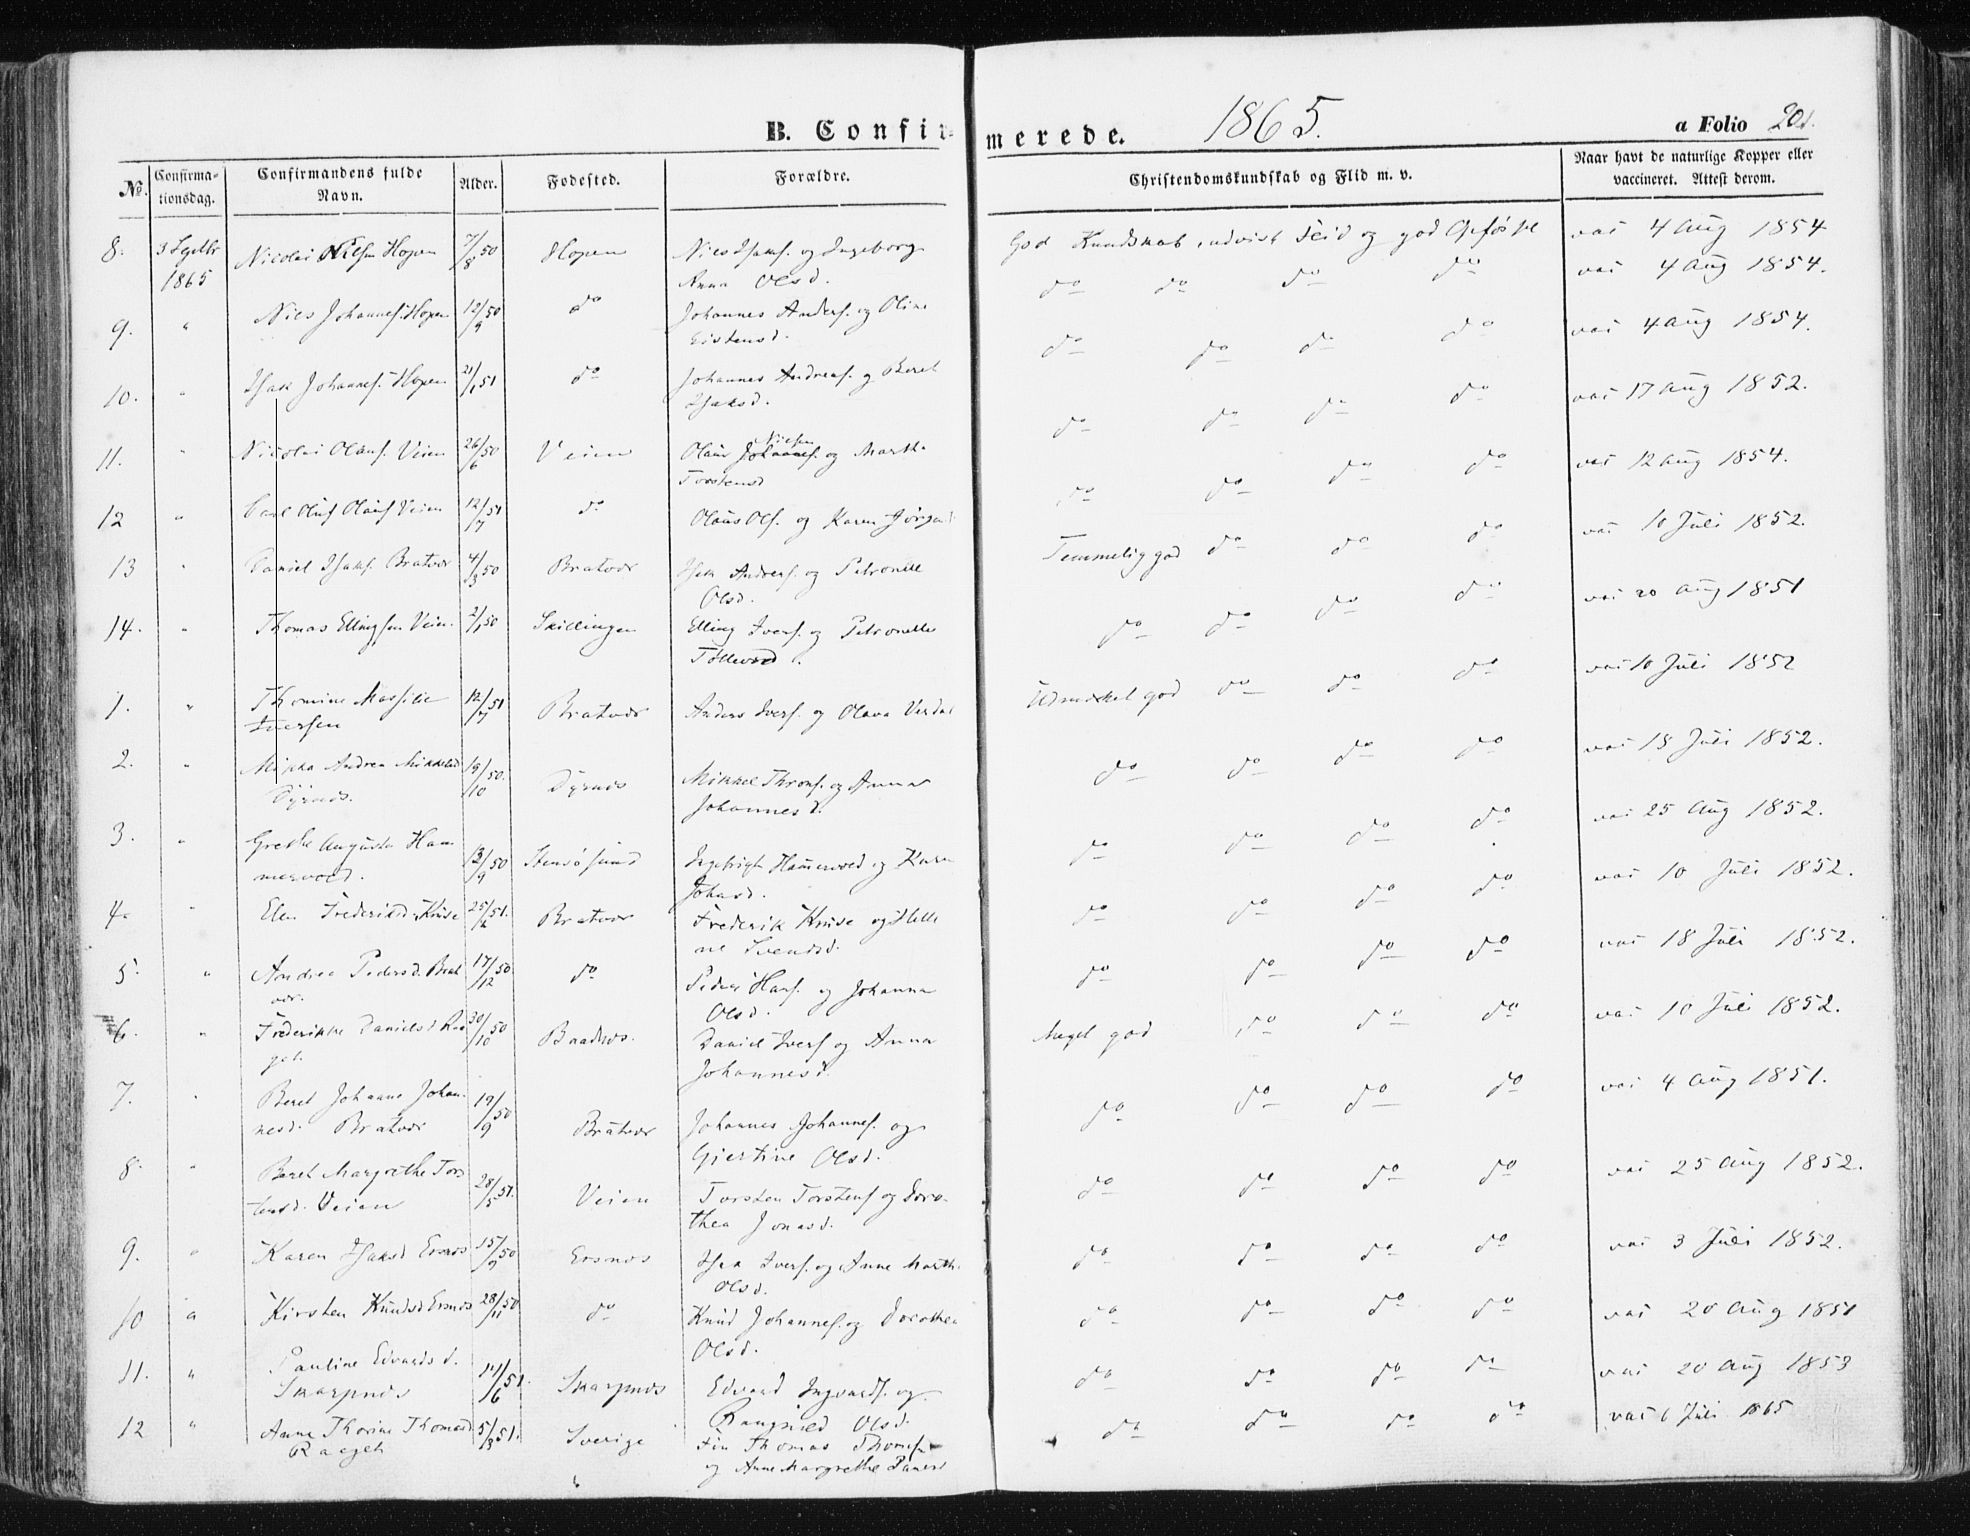 B. Confirmerede. 1865. a Folio 201.
No. Confirmationsdag. Confirmandens fulde Navn. Alder. Fødested. Forældre. Christendomskundskab og Flid m. v. Naar havt de naturlige Kopper eller vaccineret. Attest derom.
8. 3 Septbr 1865 Nicolai Hopen 7/8 50 Hopen Nils Isaks. og Ingeborg Anna Olsd. God Kundskab, udvist Flid og god Opførsel vac 4 Aug 1854
do do do do vac 4 Aug 1854.
9. " Nils Johannes. Hopen 12/9 50 do Johannes Anders. og Oline Eistensd.
do do do do vac 4 Aug 1854.
10. " Isak Johannes. Hopen 21/1 51 do Johannes Andreas. og Beret Isaksd.
do do do do vac 17 Aug 1852.
11. " Nicolai Olaus. Veien 26/6 50 Veien Olaus Nilsen og Martha Torstensd
do do do do vac 12 Aug 1854.
12 " Carl Oluf Olaus Veien 12/7 51 do Olaus Ols. og Karen
Temmelig god do do do vac 10 Juli 1852.
13 " Daniel Isaks. Bratvær 4/3 50 Bratvær Isak Anders. og Petronelle Olsd.
do do do do vac 20 Aug 1851
14. " Thomas Ellingsen Veien 2/1 50 Skillingen Elling Ivers. og Petronelle
1. " Thomine Massilie Iversen 12/7 51 Bratvær Anders Ivers. og Olava Udmærket god do do do vac 10 Juli 1852
2. " Andrea Mikkelsd Dyrnes. 19/10 50. Dyrnes Mikkel Throns. og Anna Johannesd. do do do do vac 18 Juli 1852.
3. " Grethe Augusta Hammervold. 13/9 50 Stensøsund Hammervold og Karen Johnsd. do do do do vac 25 Aug 1852.
4. " Elen Frederiksd. Kruse 25/2 51. Bratvær Frederik Kruse og Hellene Svendsd. do do do do vac 10 Juli 1852.
5. " Andrea Pedersd. Bratvær. 17/12 50. do Peder Hans. og Johanna Olsd. do do do do vac 18 Juli 1852.
6. " Frederikke Danielsd 30/10 50 Daniel Ivers og Anna Johannesd. Meget god do do do vac 10 Juli 1852.
7. " Beret Johanne Johannesd. Bratvær 19/9 50 Bratvær Johannes Johannes. og Gjertine Olsd. do do do do vac 4 Aug 1851.
8. " Beret Margrethe Torstensd. Veien 28/5 51. Veien Torsten Torstens og Dorothea Jonasd. do do do do vac 25 Aug 1852.
9. " Karen Isaksd Ersnes 15/9 50 Ersnes Isak Ivers. og Anne Marth. Olsd. do do do do vac 3 Juli 1852.
10 " Kirsten Knudsd Ersnes 28/11 50 do Knud Johannes. og Dorothea Olsd. do do do do vac 20 Aug 1851
11. " Pauline Edvardsd. Skarpnes 14/6 51. Skarpnes Edvard Ingvards. og Rangnild Olsd. do do do do vac 20 Aug 1853
12 " Anne Thorine Thomasd Raaget 5/3 51. Sverige Fin Thomas Thomas. og Anne Margrethe do do do do vac 6 Juli 1865